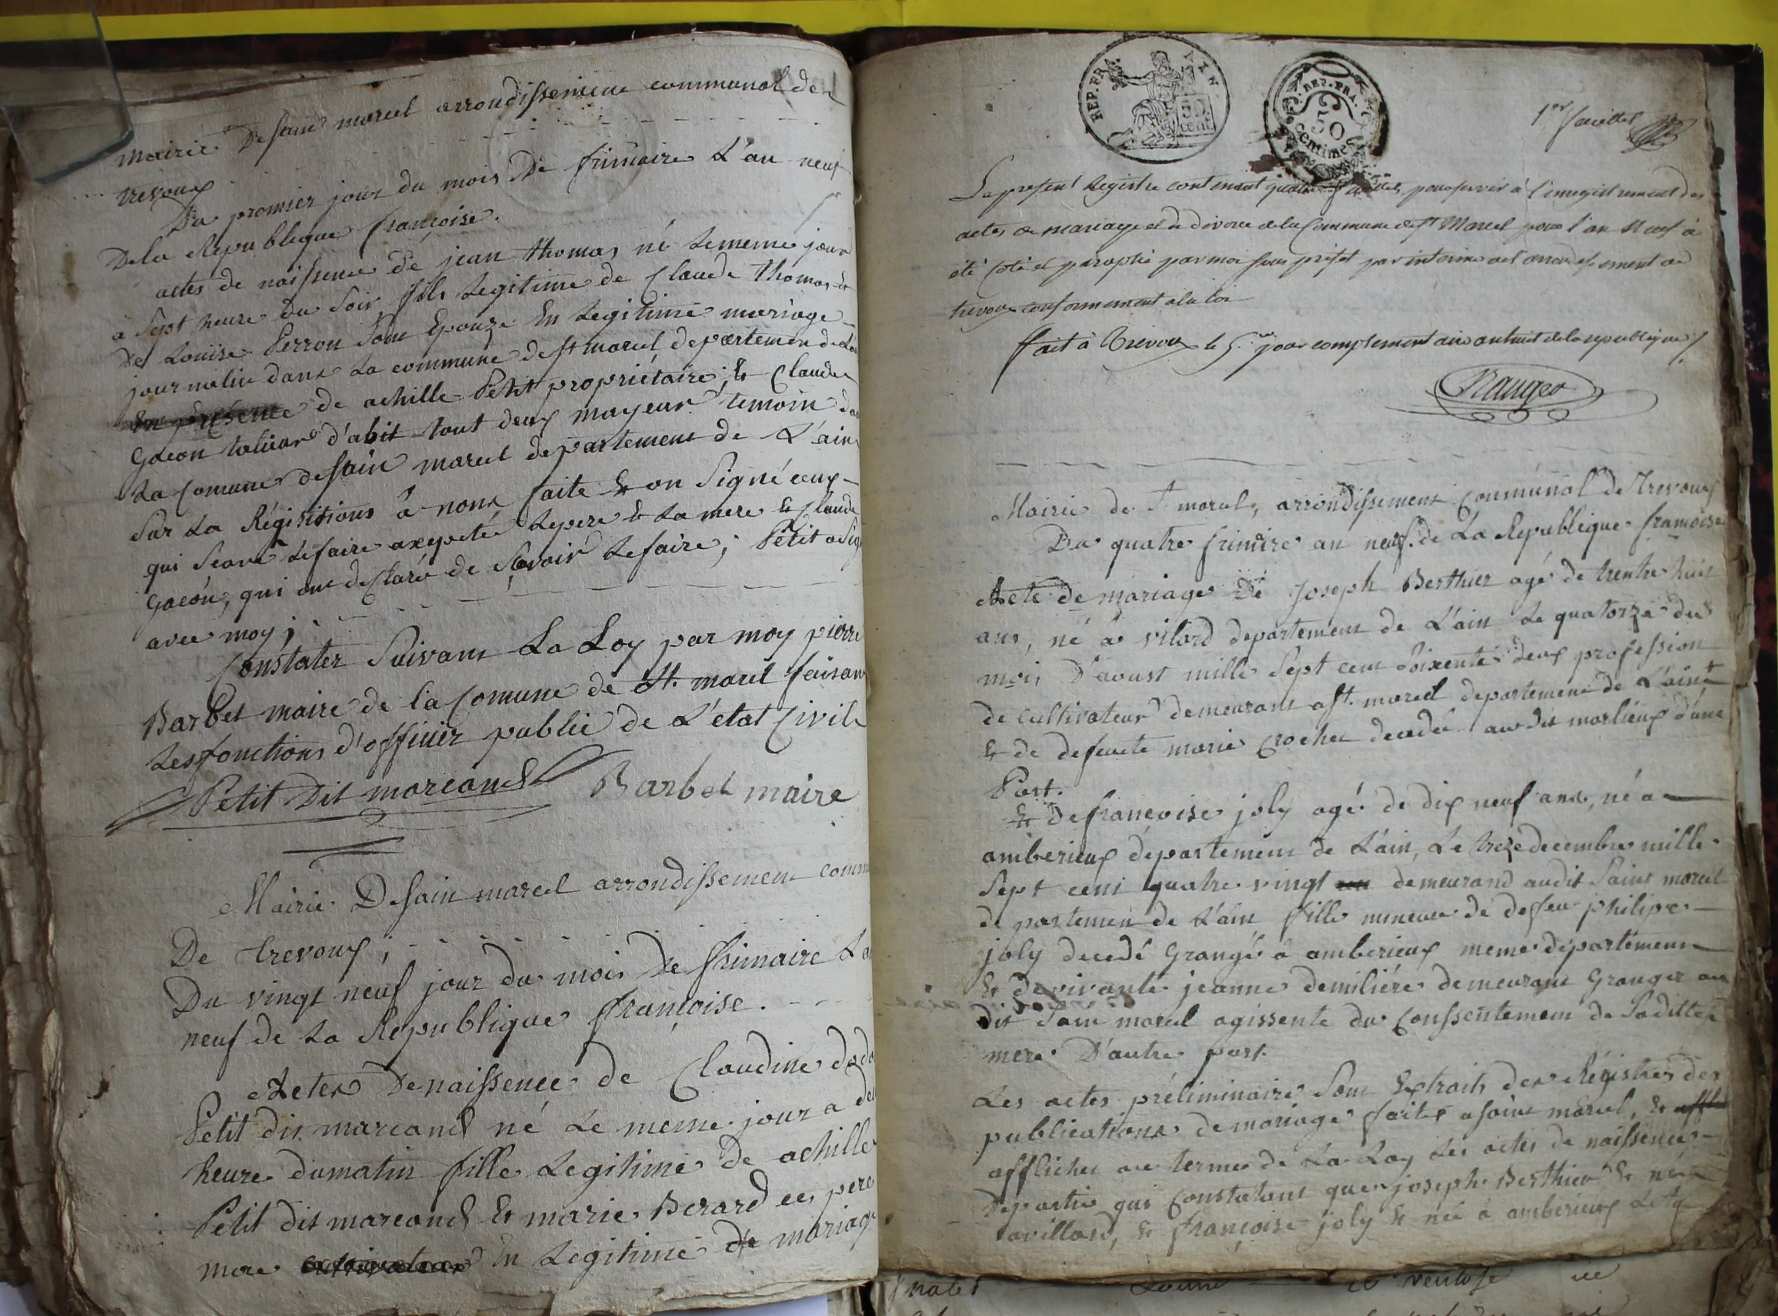 mairie De sain marcel arrondissement communal de
trevoux
Du premier jour du mois De frimaire L'an neuf
De la Republique françoise.
actes de naissence de jean thomas né le meme jour
a sept heure du soir fils Legitime de Claude thomas &
De Louise Perron son Epouze En Legitime mariage
journalie dans La commune de st marcel departemen de L'ain
En presence de achille Petit propriétaire, & Claude
Gacon talieur d'abit tout deux mayeur temoin de
La Comune de sain marcel departement de L'ain
Sur La Régisitions à nous faite & on Signé ceux
qui Seave Lefaire axepeté Lepere & La mere & Claude
Gacon, qui ont desclaré de Savoir Lefaire; Petit a Sig
avec moy;
Constater Suivant La Loy par moy pierre
Barbet maire de la Comune de st. marcel faisant
Les fonctions d'officier public de L'état Civile
Petit Dit marcand Barbet maire
Mairie De sain marcel arrondissement comm
De trevoux;
Du vingt neuf jour du mois De frimaire La
neuf de La Republique françoise.
Actes De naissence de Claudine
Petit dit marcand né Le meme jour a de
heure du matin fille Legitime de achille
Petit dit marcand & marie Berard ces pere
mere En Legitime de mariage
REP. FRA.
50 cent.
REP. FRA.
50
centimes
1er feuillet
Le present Registre contenant quatre feuillets, pour servir à l'enregistrement des
actes de mariage et de divorce de la Commune de St Marcel pour l'an Neuf à
été Coté et paraphé par moi sous préfet par interim de l'arrondissement de
trevoux conformement a la loi
fait à Trevoux le 5.me jour complementaire an huit de la republique
Mairie de St marcel, arrondissement Communal de Trevoux
Du quatre frimere an neuf de La Republique françoise
Acte de mariage de Joseph Berthier agé de trentre huit
ans, né à vilard departement de L'ain Le quatorze du
mois D'avoust mille Sept cent Soixente deux profession
de cultivateur demeurant a st. marcel departement de L'ain +
& de defeunte marie Crochet decedée audit marlieux d'une
Part.
& de françoise joly agé de dix neuf ans, né a
amberieux département de L'ain, Le treze decembre mille
Sept cent quatre vingt demeurand audit Saint marcel
departemen de L'ain fille mineure de defeu philipe
joly decedé Grangé à amberieux meme département
& de vivante jeanne demilière demeurant Granger au
dit Sain marcel agissente du Conssentemen de Saditte
mere D'autre part.
Les actes préliminaire Sont Extraits des Régistres des
publications de mariage faites a saint marcel, &
affiches au termes de La Loy Les actes de naissences
Departie qui Constatent que joseph Berthier & né
avillard, & françoise joly & née à amberieux